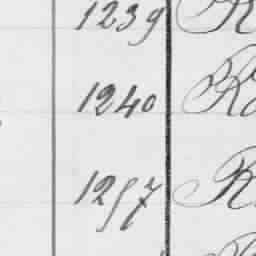 1239 R
1240 Ra
1257 R